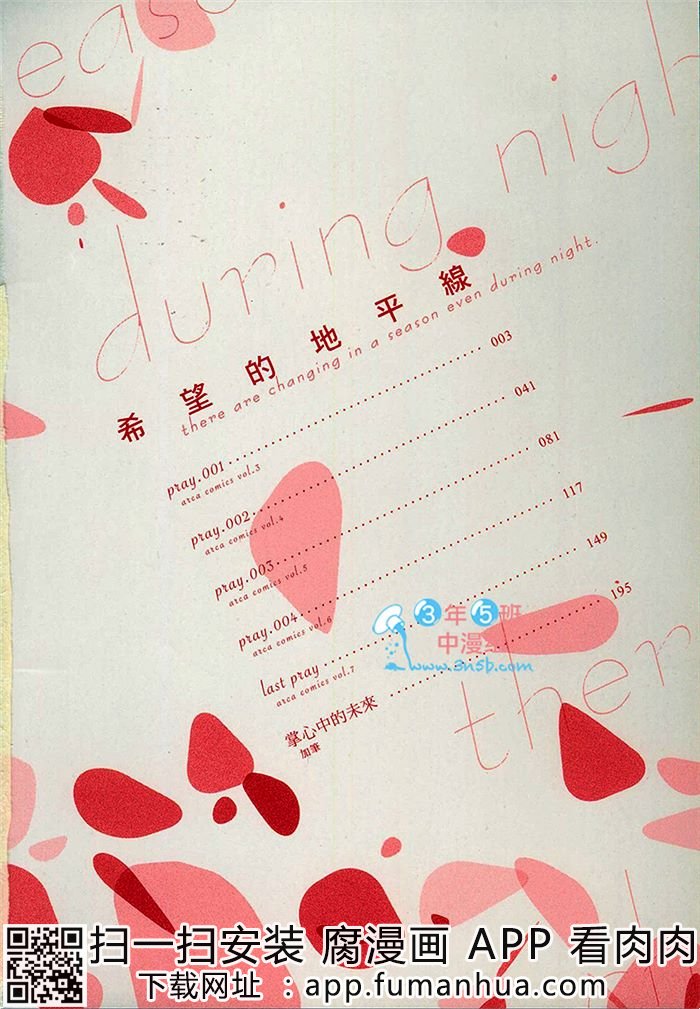 ease
during nigh
希望的地平線
there are changing in a season even during night.
pray.001 003
arca comics vol.3
pray.002 041
arca comics vol.4
pray.003 081
arca comics vol.5
pray.004 117
arca comics vol.6
last pray 149
arca comics vol.7
掌心中的未來 195
加筆
3年5班
中漫
www.3n5b.com
then
扫一扫安装 腐漫画 APP 看肉肉
下载网址 ：app.fumanhua.com